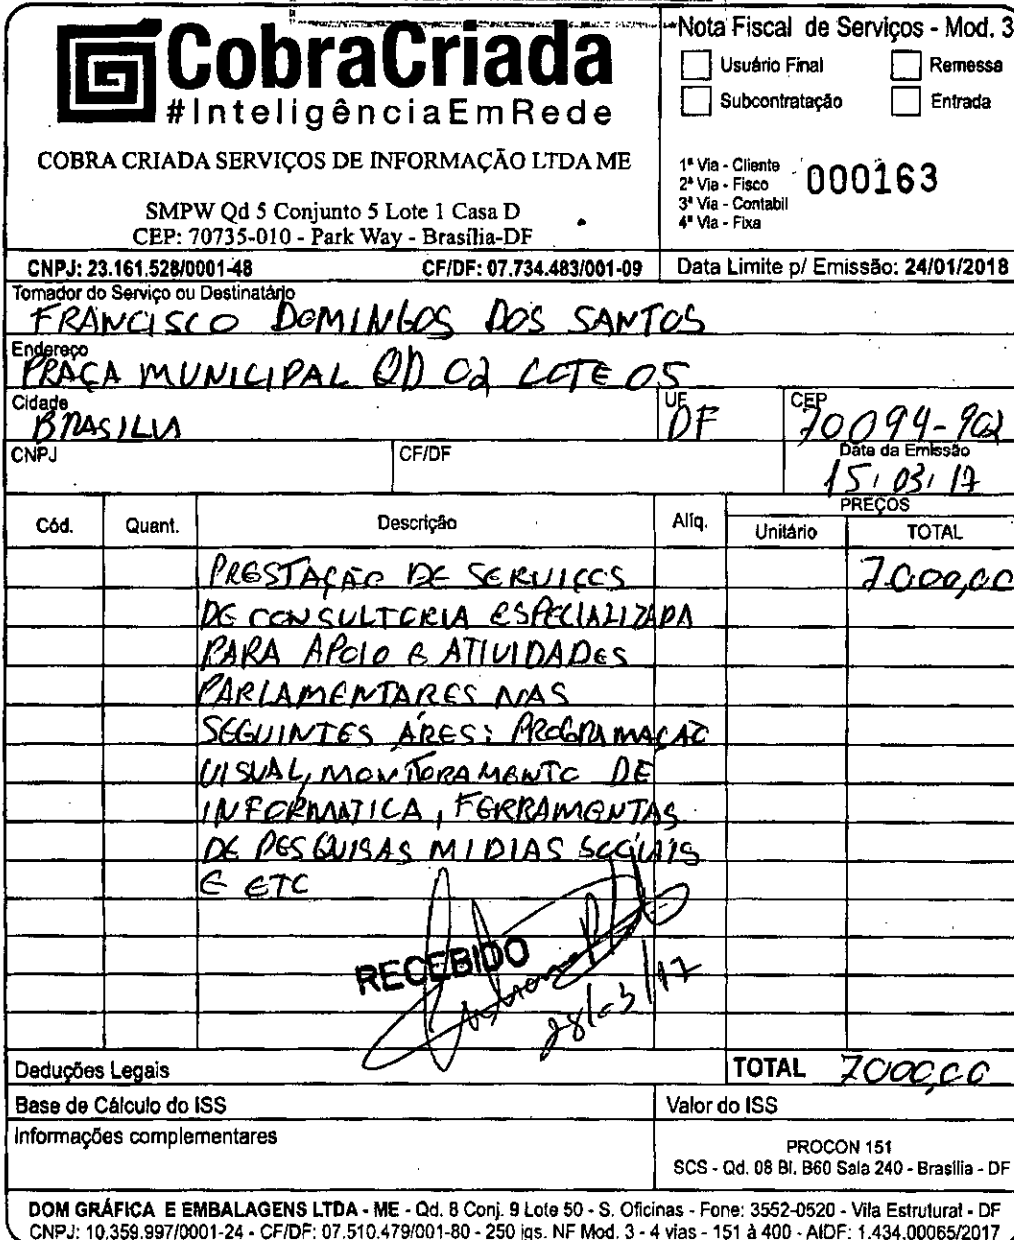 CobraCriada
#InteligênciaEmRede
COBRA CRIADA SERVIÇOS DE INFORMAÇÃO LTDA ME
SMPW Qd 5 Conjunto 5 Lote 1 Casa D
CEP: 70735-010 - Park Way - Brasília-DF
CNPJ: 23.161.528/0001-48 CF/DF: 07.734.483/001-09
Nota Fiscal de Serviços - Mod. 3
Usuário Final Remessa
Subcontratação Entrada
1ª Via - Cliente
2ª Via - Fisco
3ª Via - Contabil
4ª Via - Fixa
000163
Data Limite p/ Emissão: 24/01/2018
Tomador do Serviço ou Destinatário
FRANCISCO DOMINGOS DOS SANTOS
Endereço
PRAÇA MUNICIPAL QD 02 LOTE 05
Cidade UF CEP
BRASILIA DF 70094-902
CNPJ CF/DF Data da Emissão
15/03/17
Cód. Quant. Descrição Alíq. PREÇOS
Unitário TOTAL
PRESTAÇÃO DE SERVIÇOS 7.000,00
DE CONSULTORIA ESPECIALIZADA
PARA APOIO E ATIVIDADES
PARLAMENTARES NAS
SEGUINTES ÁRES: PROGRAMAÇÃO
VISUAL, MONTORAMENTO DE
INFORMATICA, FERRAMENTAS
DE PESQUISAS MIDIAS SOCIAIS
E ETC
RECEBIDO
28/03/17
Deduções Legais TOTAL 7000,00
Base de Cálculo do ISS Valor do ISS
Informações complementares
PROCON 151
SCS - Qd. 08 Bl. B60 Sala 240 - Brasília - DF
DOM GRÁFICA E EMBALAGENS LTDA - ME - Qd. 8 Conj. 9 Lote 50 - S. Oficinas - Fone: 3552-0520 - Vila Estrutural - DF
CNPJ: 10.359.997/0001-24 - CF/DF: 07.510.479/001-80 - 250 jgs. NF Mod. 3 - 4 vias - 151 à 400 - AIDF: 1.434.00065/2017